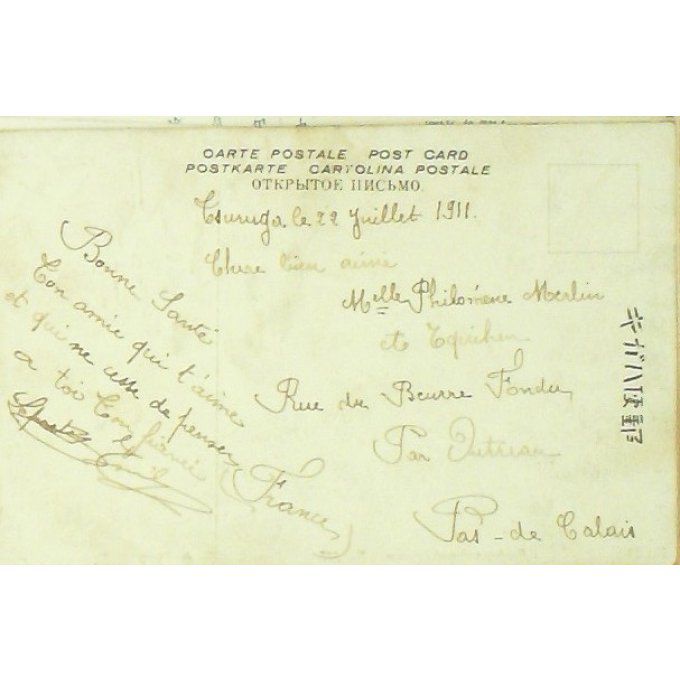 CARTE POSTALE POST CARD
POSTKARTE CARTOLINA POSTALE
ОТКРЫТОЕ ПИСЬМО.
Tsuruga le 22 Juillet 1911.
Chere bien aimé
Melle Philomène Merlin
Equihen
Rue du Beurre Fondu
Par Outreau
Pas-de Calais
(France)
Bonne Santé
Ton amie qui t'aime
et qui ne cesse de penser
a toi Ton fiancé
Emil